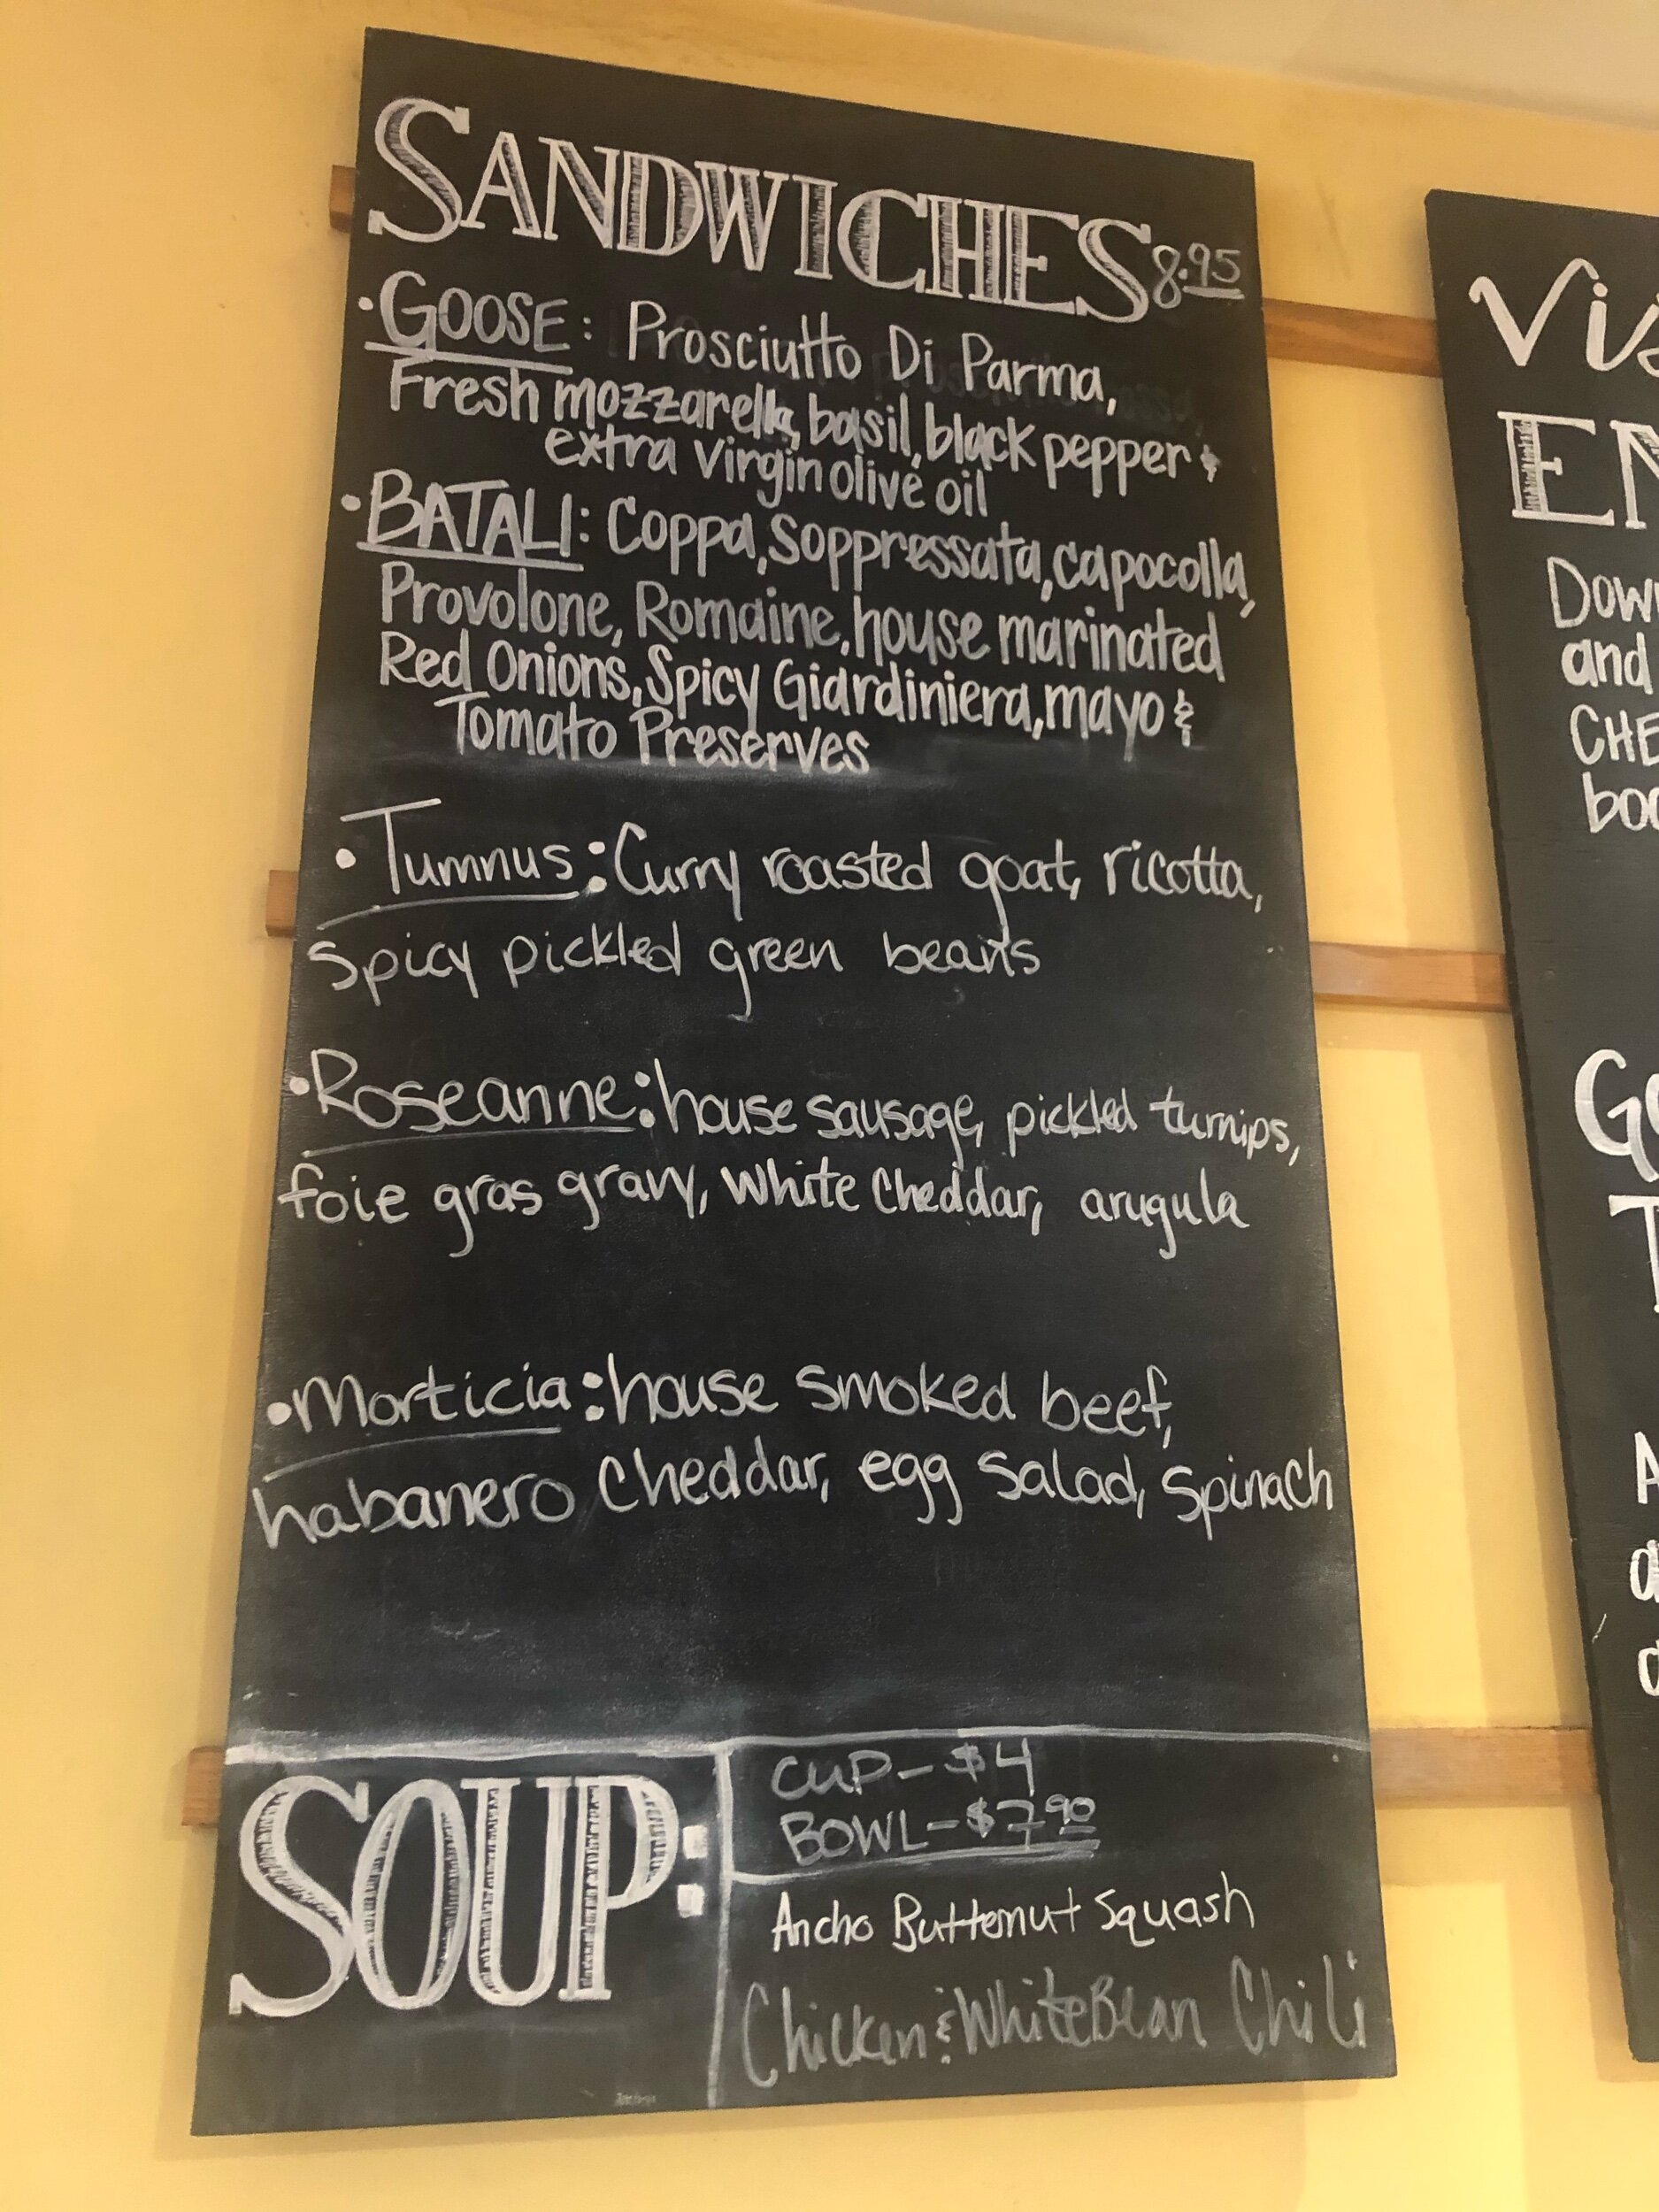 SANDWICHES 8.95
·GOOSE: Prosciutto Di Parma,
Fresh mozzarella, basil, black pepper &
extra virgin olive oil
·BATALI: Coppa, Soppressata, capocolla,
Provolone, Romaine, house marinated
Red Onions, Spicy Giardiniera, mayo &
Tomato Preserves
·Tumnus: Curry roasted goat, ricotta,
Spicy pickled green beans
·Roseanne: house sausage, pickled turnips,
foie gras gravy, white Cheddar, arugula
·Morticia: house smoked beef,
habanero Cheddar, egg salad, spinach
SOUP:
CUP-$4
BOWL-$7.90
Ancho Butternut Squash
Chicken & White Bean Chili
Vis
EN
Down
and
CHE
boo
Go
T
A
a